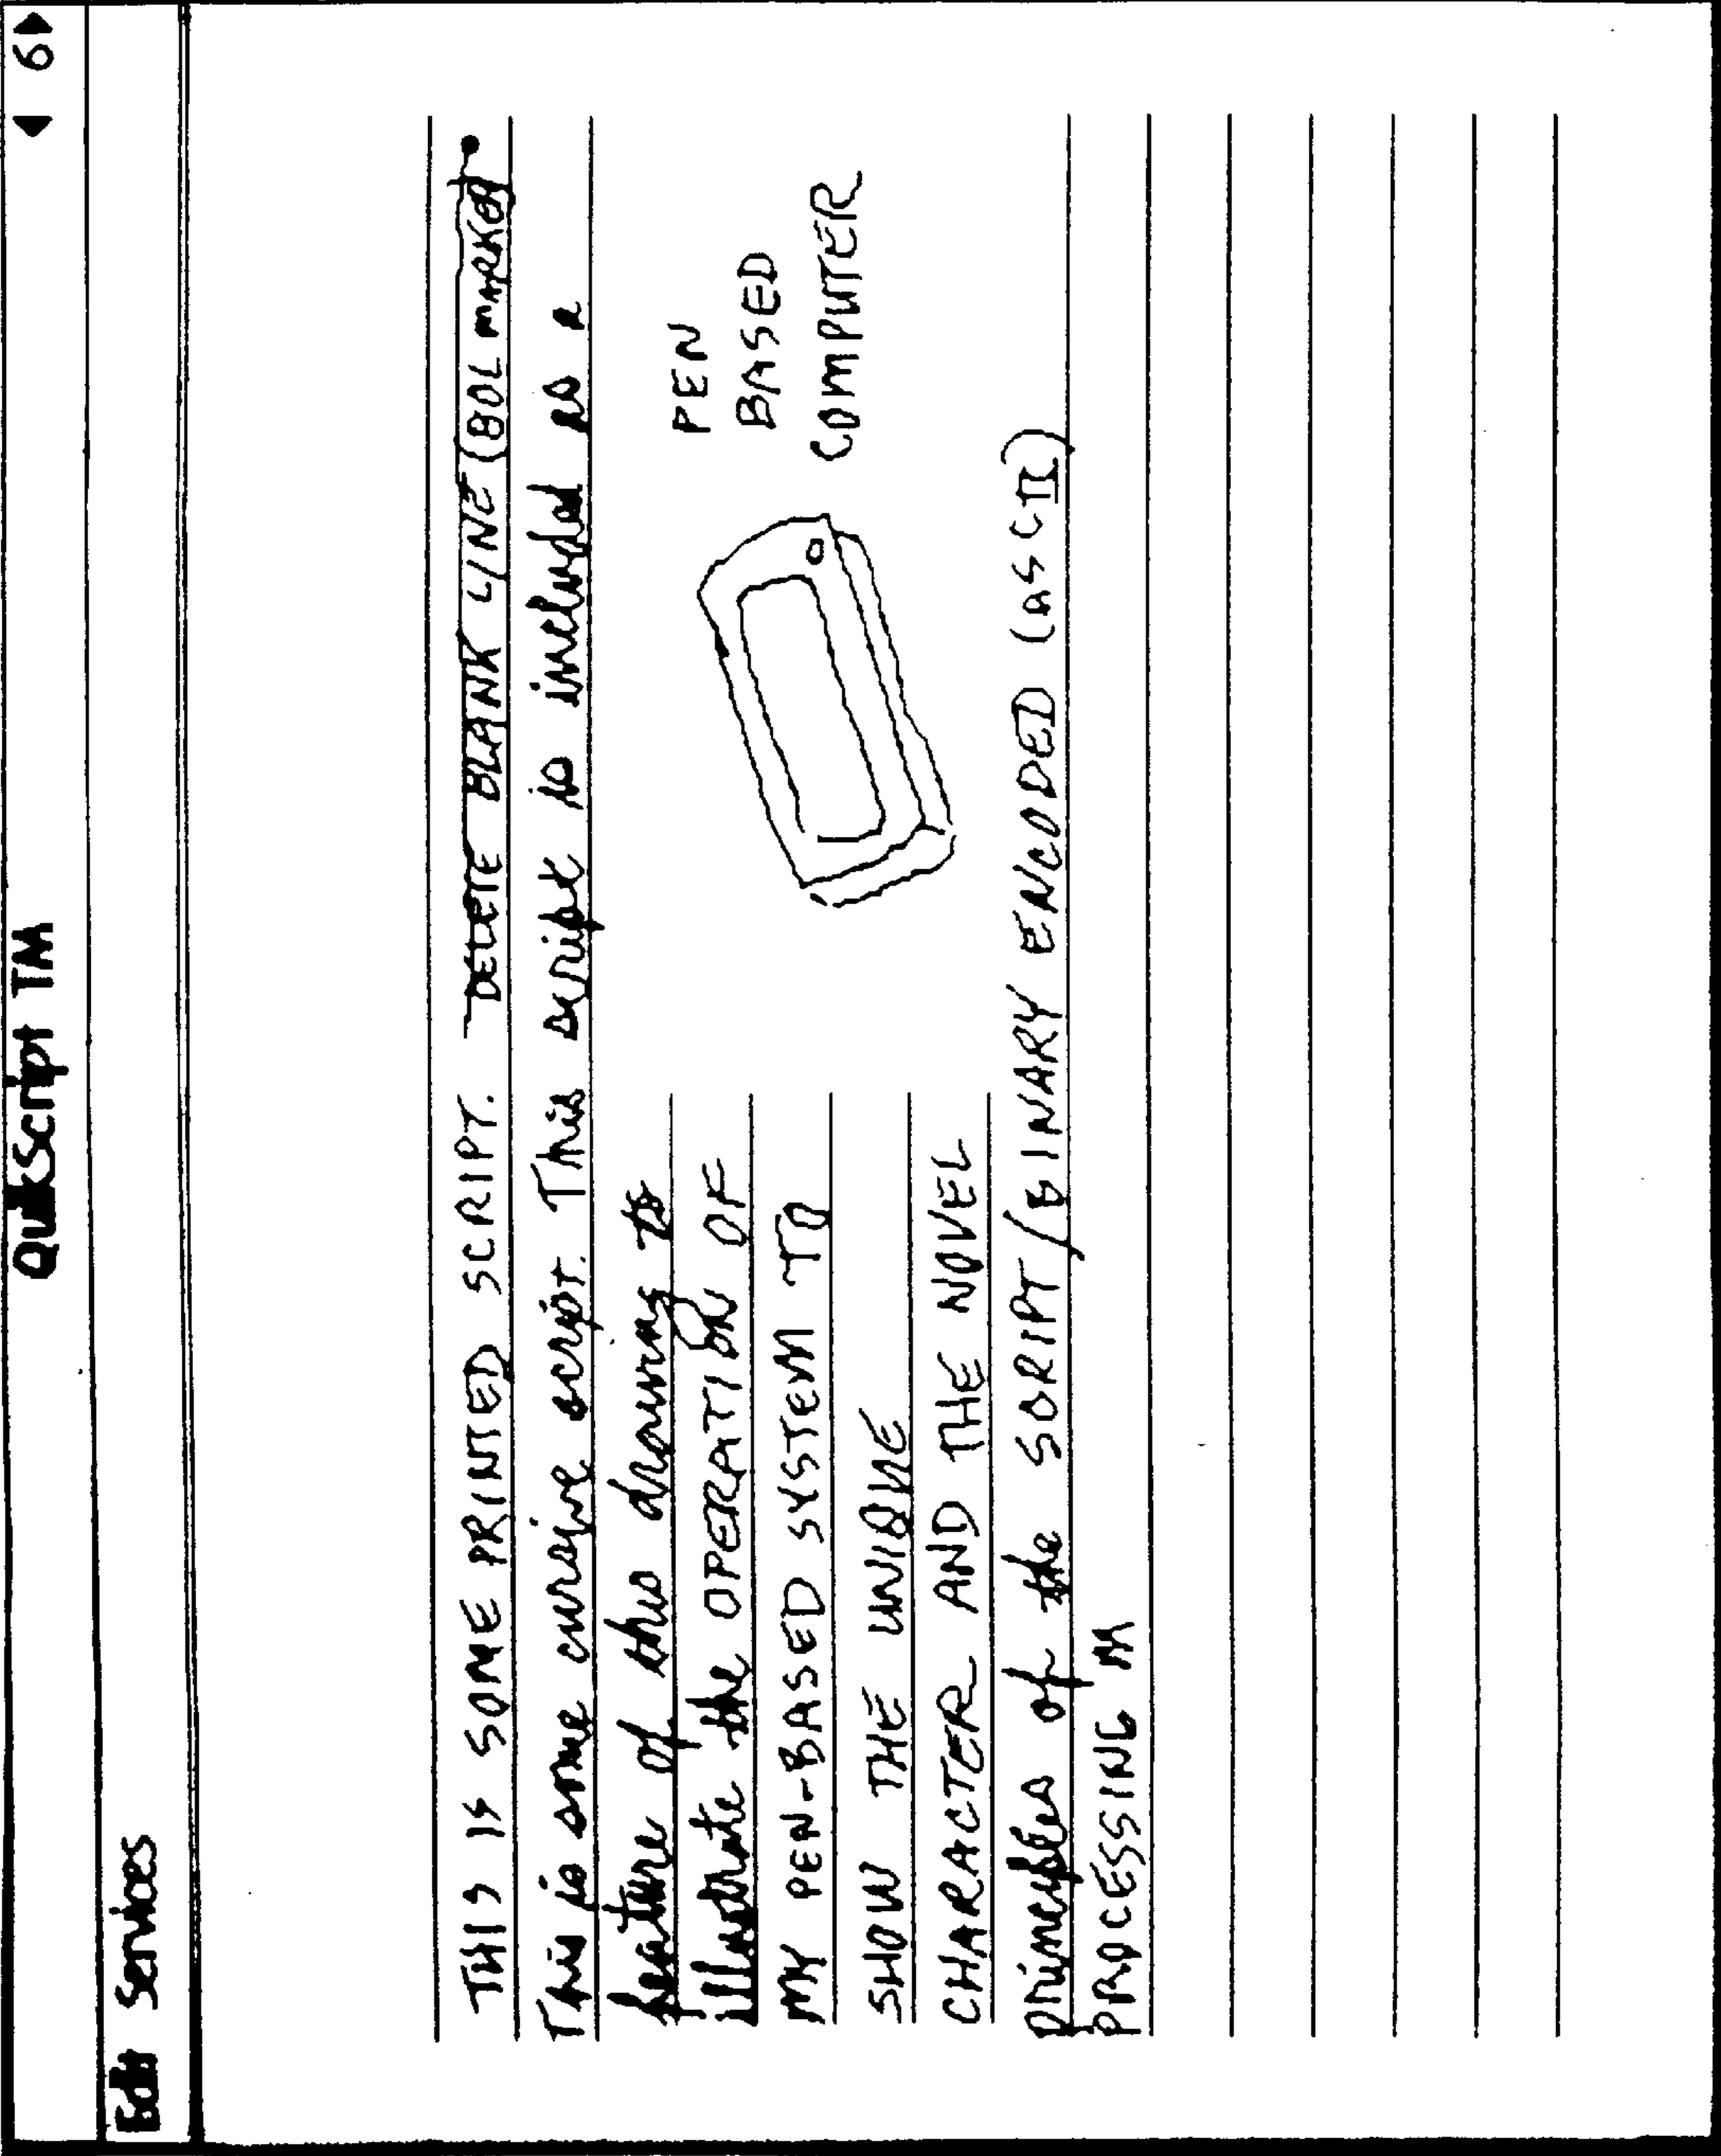 QuikScript TM
6
Edit Services
THIS IS SOME PRINTED SCRIPT. DELETE BLANK LINE (BOL MARKER
This is some cursive script. This script is included as a
feature of this drawing to
illustrate the OPERATION OF
MY PEN-BASED SYSTEM TO
SHOW THE UNIQUE
CHARACTER AND THE NOVEL
principles of the SCRIPT/BINARY ENCODED (ASCII)
PROCESSING M
PEN
BASED
COMPUTER